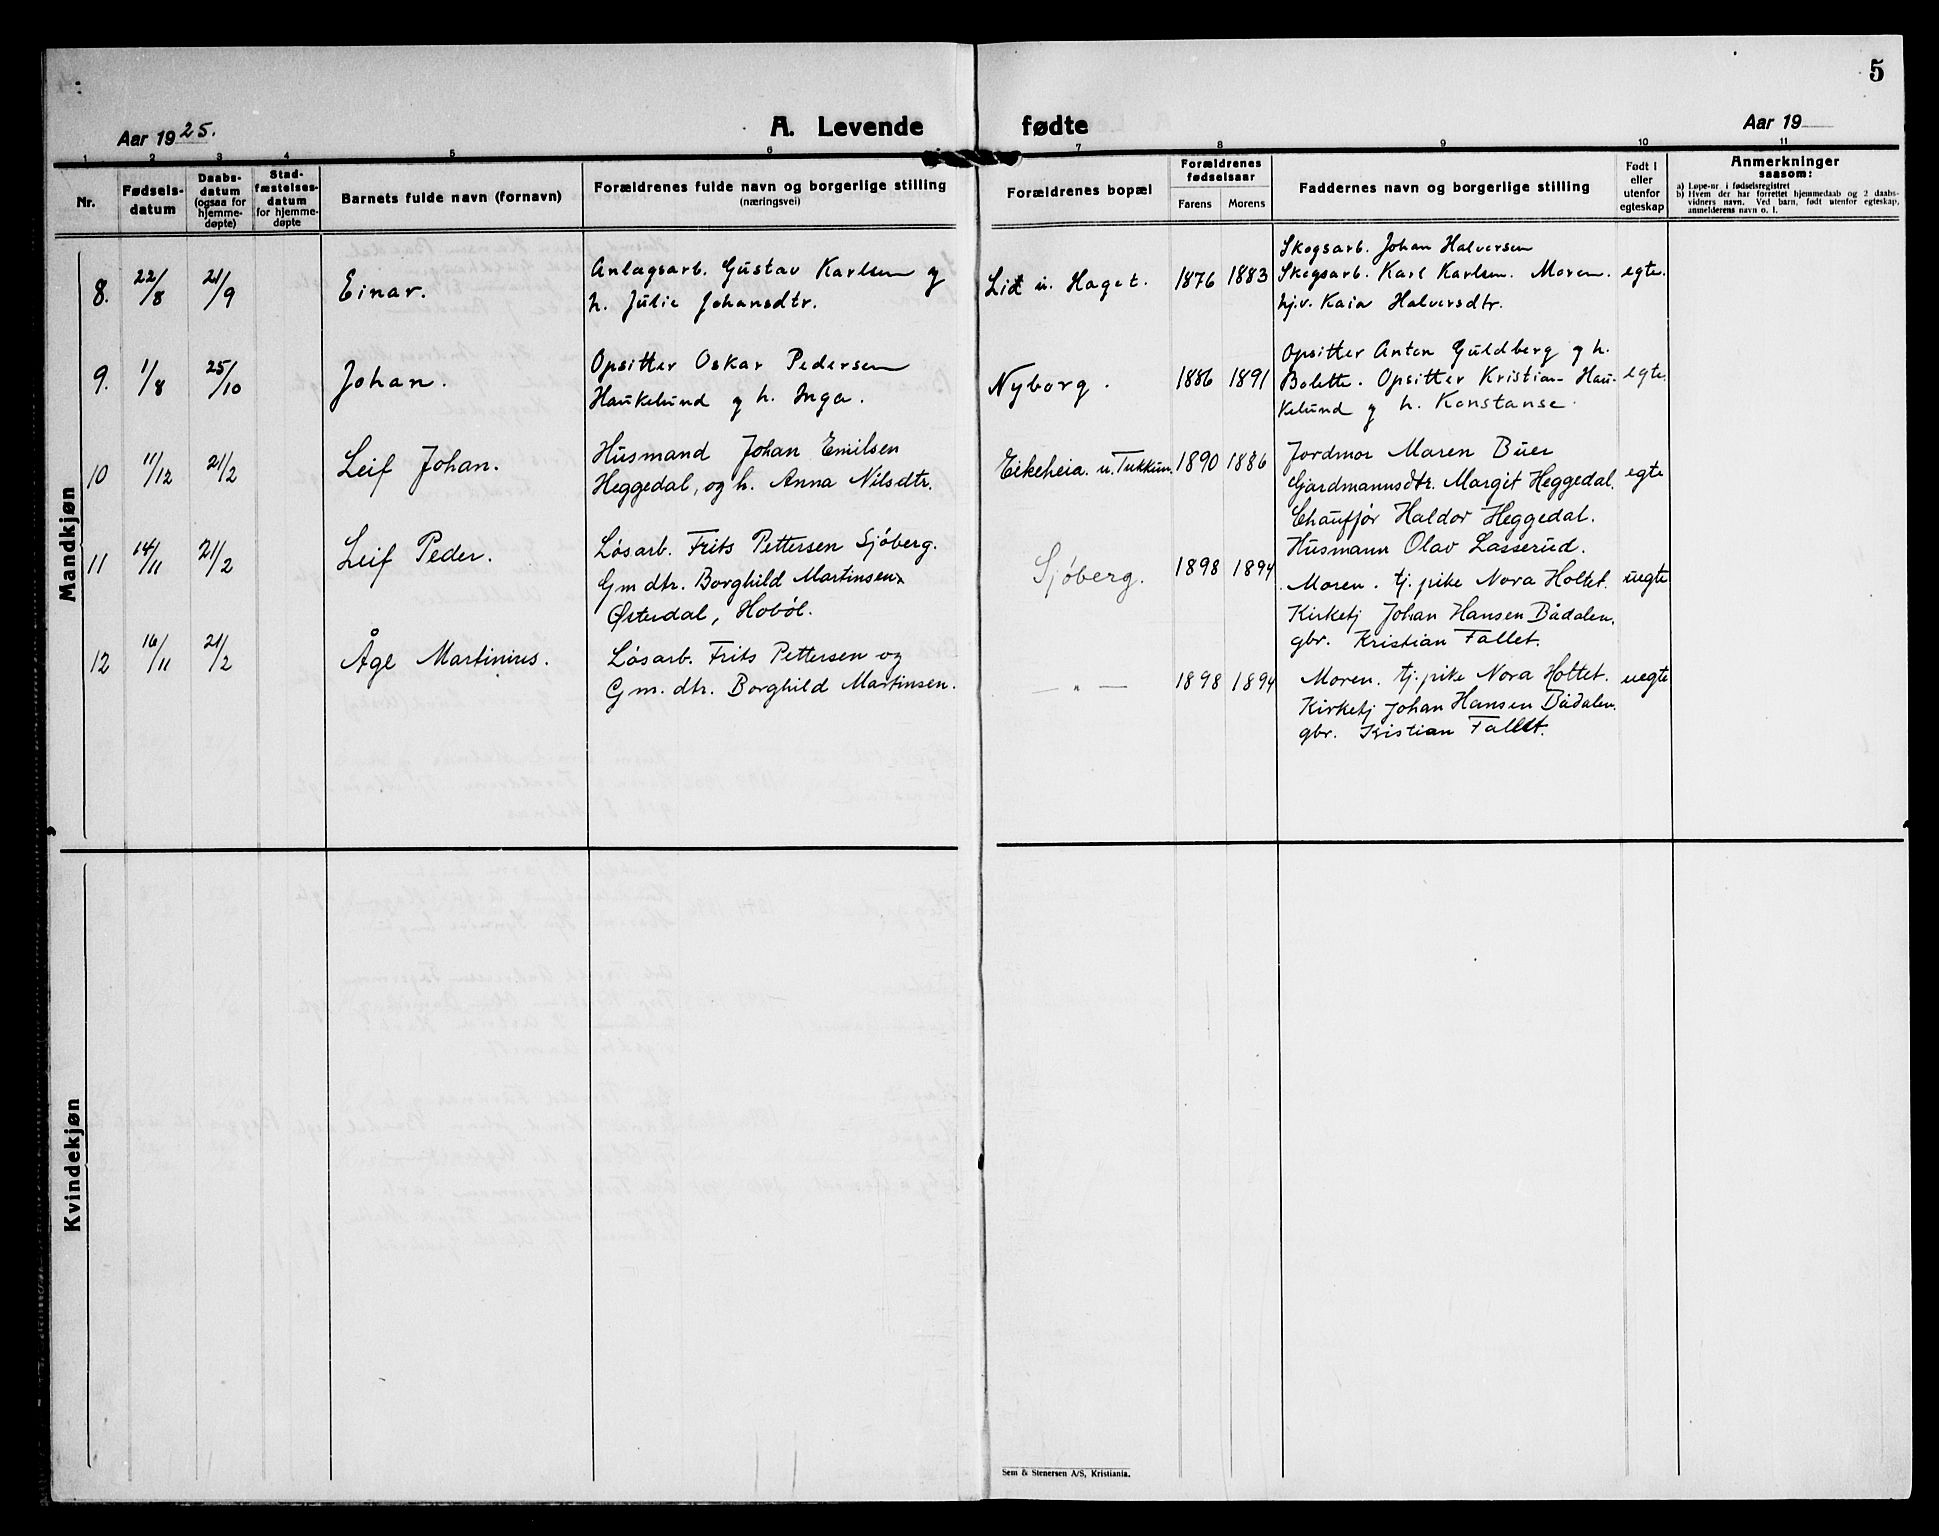 5
Aar 1925.
A. Levende fødte
Aar 19
1 2 3 4 5 6 7 8 9 10 11
Nr.
Fødselsdatum
Daabsdatum (ogsaa for hjemmedøpte)
Stadfæstelsesdatum for hjemmedøpte
Barnets fulde navn (fornavn)
Forældrenes fulde navn og borgerlige stilling
(næringsvei)
Forældrenes bopæl
Forældrenes fødselsaar
Farens Morens
Faddernes navn og borgerlige stilling
Født i eller utenfor egteskap
Anmerkninger
saasom:
a) Løpe-nr. i fødselsregistret
b) Hvem der har forrettet hjemmedaab og 2 daabsvidners navn. Ved barn, født utenfor egteskap, anmelderens navn o. l.
Mandkjøn
8. 22/8 21/9 Einar.
Anlagsarb. Gustav Karlsen og
h. Julie Johansdtr.
Lid u. Haget. 1876 1883
Skogsarb. Johan Halversen
Skogsarb. Karl Karlsen. Moren.
hj.v. Kaia Halversdtr.
egte.
9. 1/8 25/10 Johan.
Opsitter Oskar Pedersen
Haukelund og h. Inga.
Nyborg. 1886 1891
Opsitter Anton Guldberg og h.
Bolette. Opsitter Kristian Hau-
kelund og h. Konstanse.
egte.
10 11/12 21/2 Leif Johan.
Husmand Johan Emilsen
Heggedal, og h. Anna Nilsdtr.
Eikeheia u. Tukkun. 1890 1886
Jordmor Maren Buer
Gardmannsdtr. Margit Heggedal.
Chaufjør Haldor Heggedal.
Husmann Olav Lasserud.
egte
11 14/11 21/2 Leif Peder.
Løsarb. Frits Pettersen Sjøberg.
Gm dtr. Borghild Martinsen
Østerdal, Hobøl.
Sjøberg. 1898 1894
Moren. tj. pike Nora Holtet.
Kirketj Johan Hansen Bådalen,
gbr. Kristian Fallet.
uegte
12 16/11 21/2 Åge Martinius.
Løsarb. Frits Pettersen og
Gm. dtr. Borghild Martinsen.
— " — 1898 1894
Moren. tj. pike Nora Holtet.
Kirketj Johan Hansen Bådalen.
gbr. Kristian Fallet.
uegte
Kvindekjøn
Sem & Stenersen A/S, Kristiania.